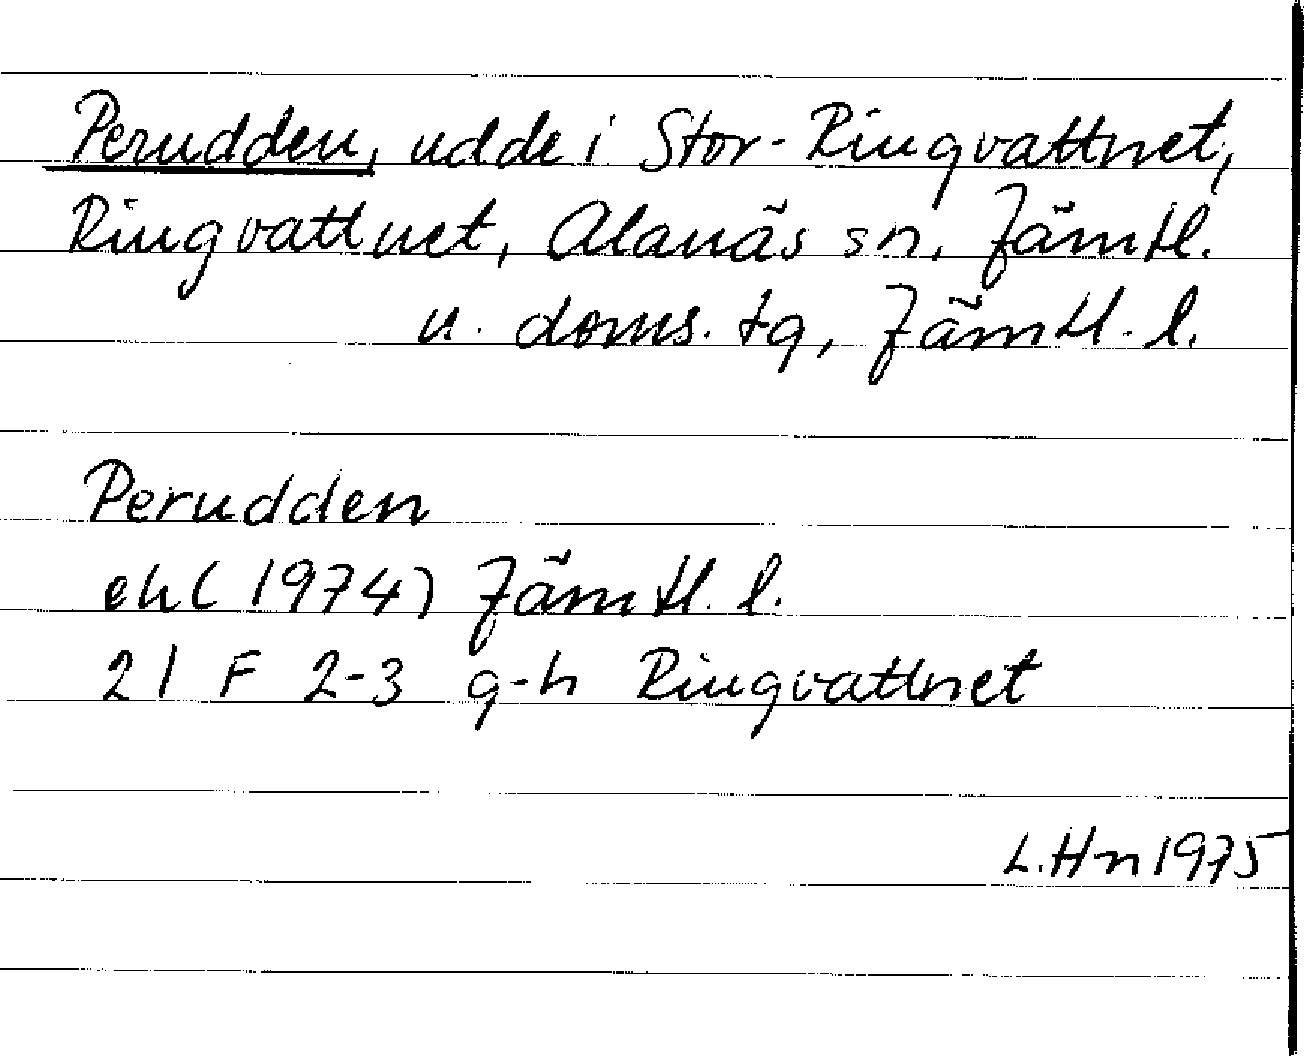 Perudden, udde i Stor-Ringvattnet,
Ringvattnet, Alanäs sn, Jämtl.
n. doms. tg, Jämtl. l.
Perudden
ek (1974) Jämtl. l.
21 F 2-3 g-h Ringvattnet
L.Hn 1975